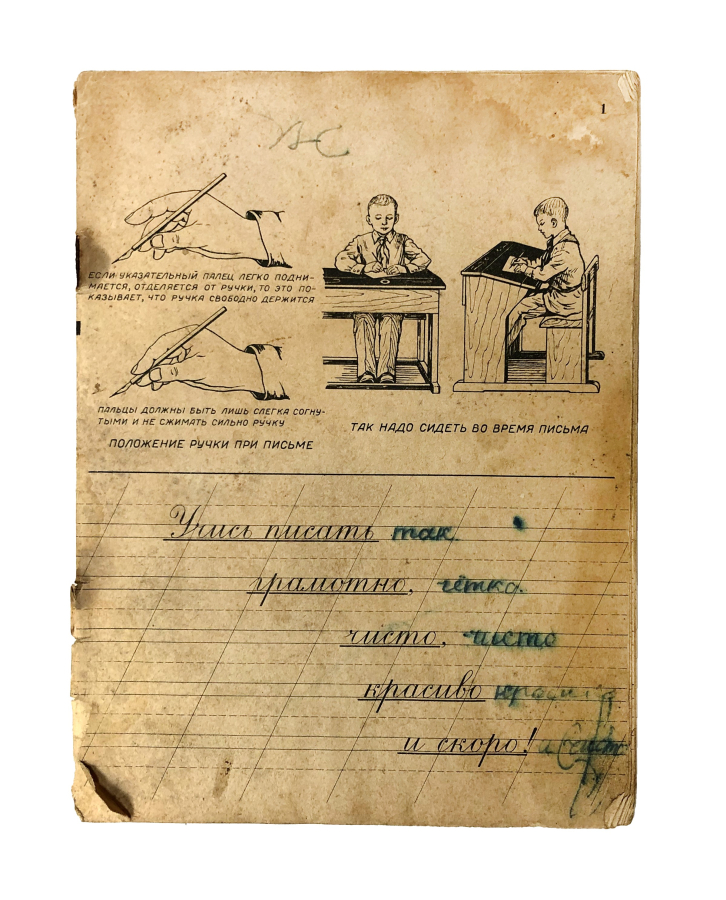 1
ЕСЛИ УКАЗАТЕЛЬНЫЙ ПАЛЕЦ ЛЕГКО ПОДНИ-
МАЕТСЯ, ОТДЕЛЯЕТСЯ ОТ РУЧКИ, ТО ЭТО ПО-
КАЗЫВАЕТ, ЧТО РУЧКА СВОБОДНО ДЕРЖИТСЯ
ПАЛЬЦЫ ДОЛЖНЫ БЫТЬ ЛИШЬ СЛЕГКА СОГНУ-
ТЫМИ И НЕ СЖИМАТЬ СИЛЬНО РУЧКУ
ПОЛОЖЕНИЕ РУЧКИ ПРИ ПИСЬМЕ
ТАК НАДО СИДЕТЬ ВО ВРЕМЯ ПИСЬМА
Учись писать так
грамотно, чётко.
чисто, чисто
красиво
и скоро!